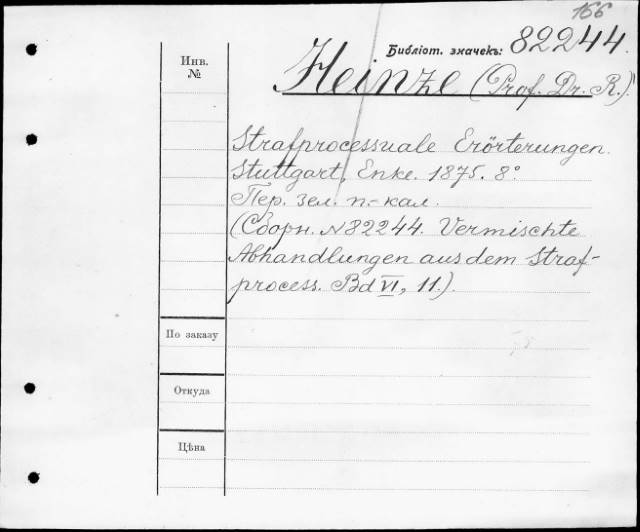 166
Библіот. значекъ: 82244.
Инв.
№
Heinze (Prof. Dr. R.).
Strafprocessuale Erörterungen.
Stuttgart, Enke. 1875. 8°
Пер. зел. п.-кал.
(Сборн. №82244. Vermischte
Abhandlungen aus dem Straf-
process. Bd VI, 11.).
По заказу
Откуда
Цѣна